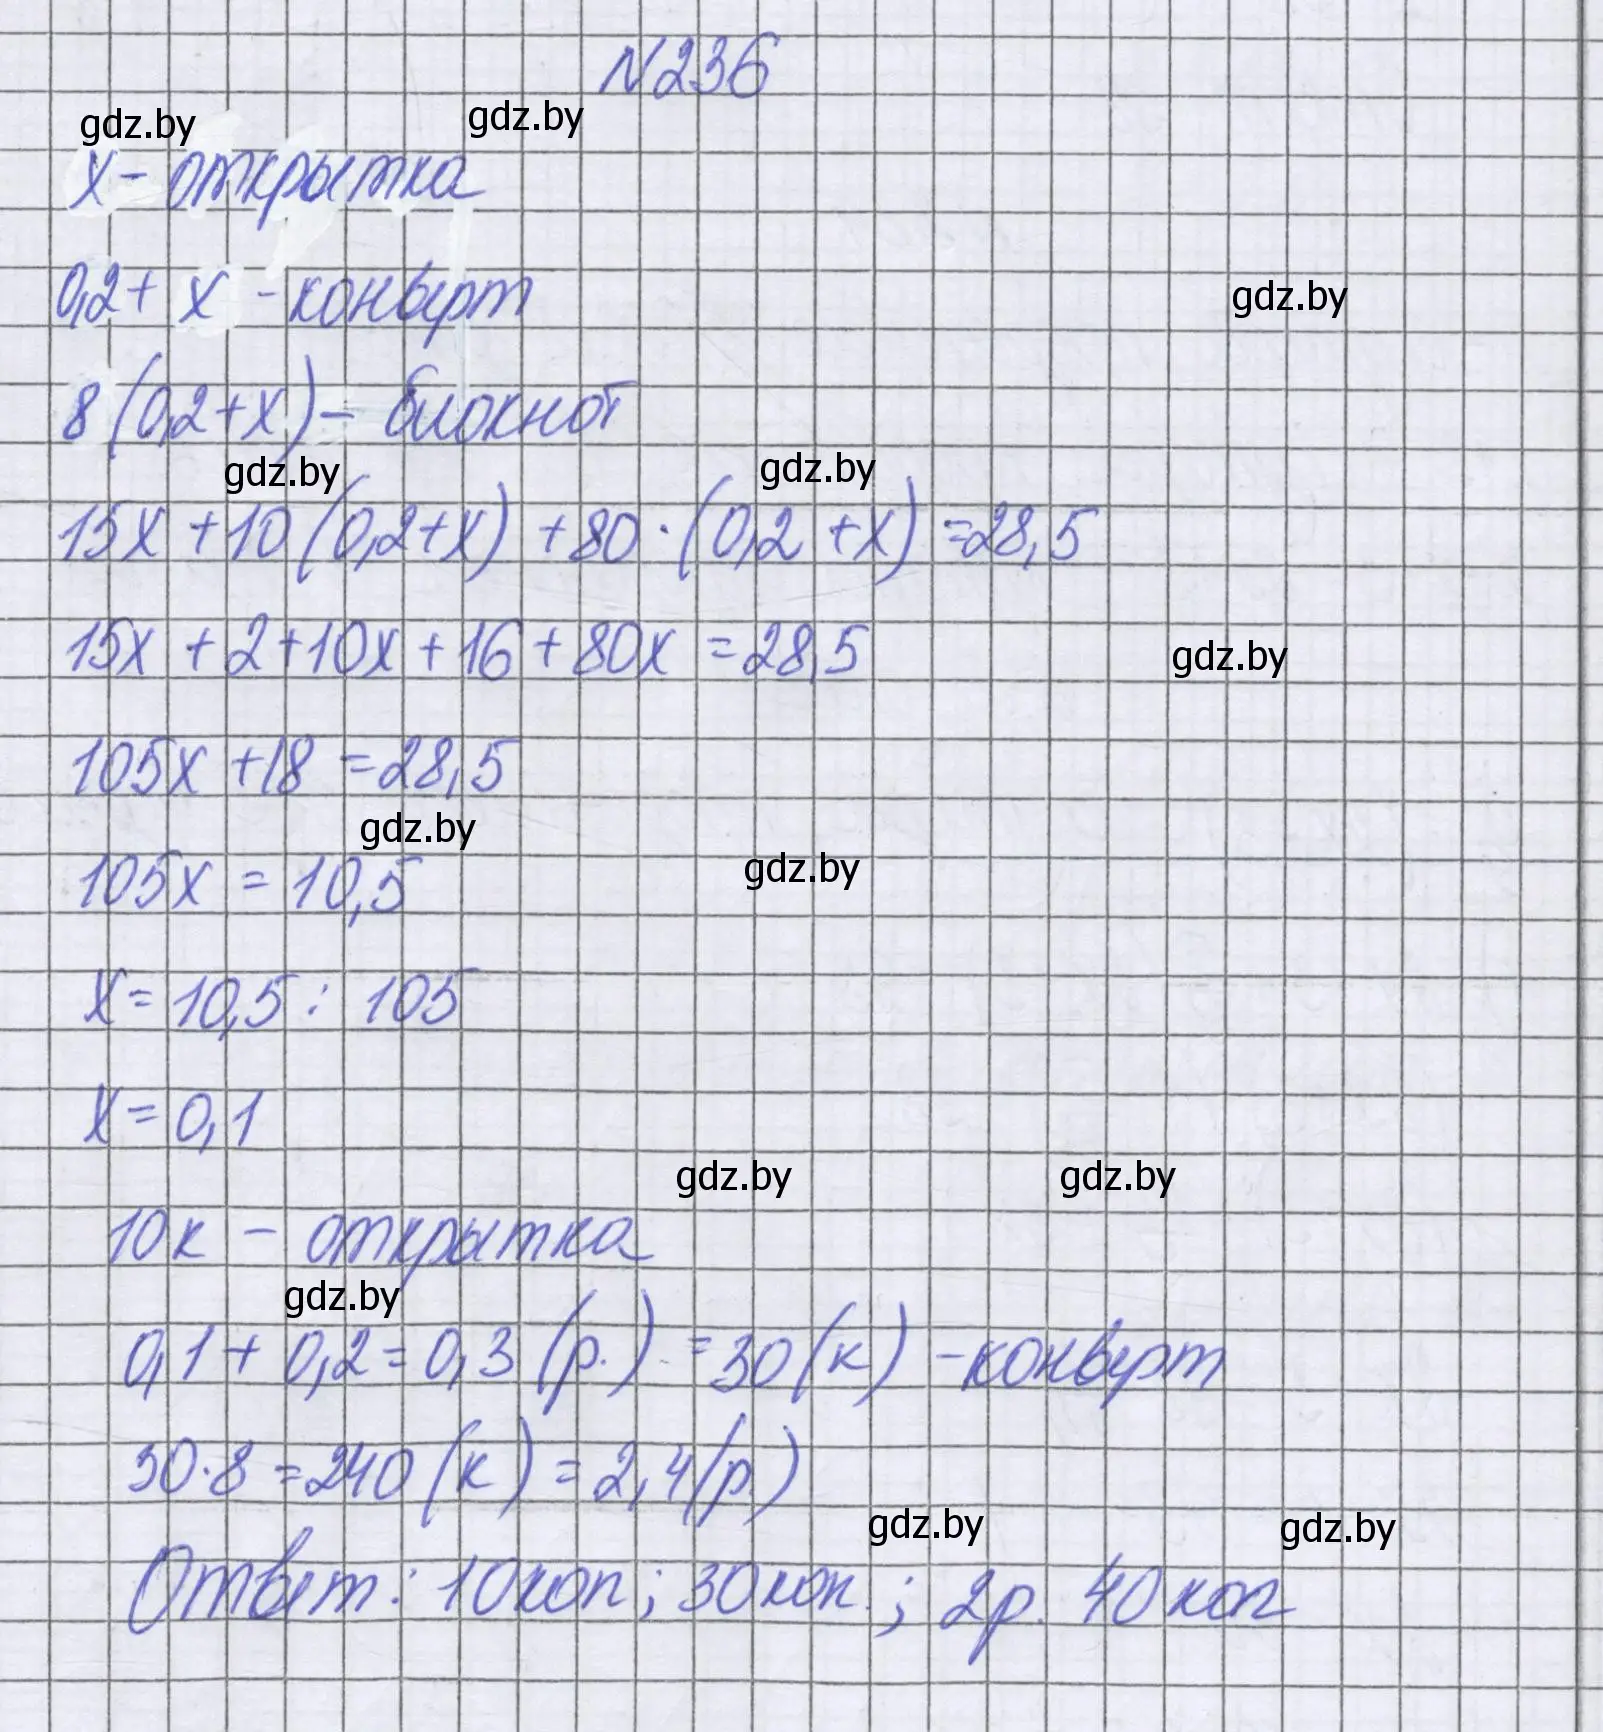 N236
gdz.by gdz.by
х - открытка
0,2 + х - конверт
gdz.by
8 (0,2 + х) - блокнот
gdz.by gdz.by
15х + 10 (0,2 + х) + 80 · (0,2 + х) = 28,5
15х + 2 + 10х + 16 + 80х = 28,5
gdz.by
105х + 18 = 28,5
gdz.by
105х = 10,5
gdz.by
х = 10,5 : 105
х = 0,1
gdz.by gdz.by
10к - открытка
gdz.by
0,1 + 0,2 = 0,3 (р.) = 30 (к) - конверт
30 · 8 = 240 (к) = 2,4 (р.)
gdz.by gdz.by
Ответ: 10 коп; 30 коп.; 2р. 40 коп